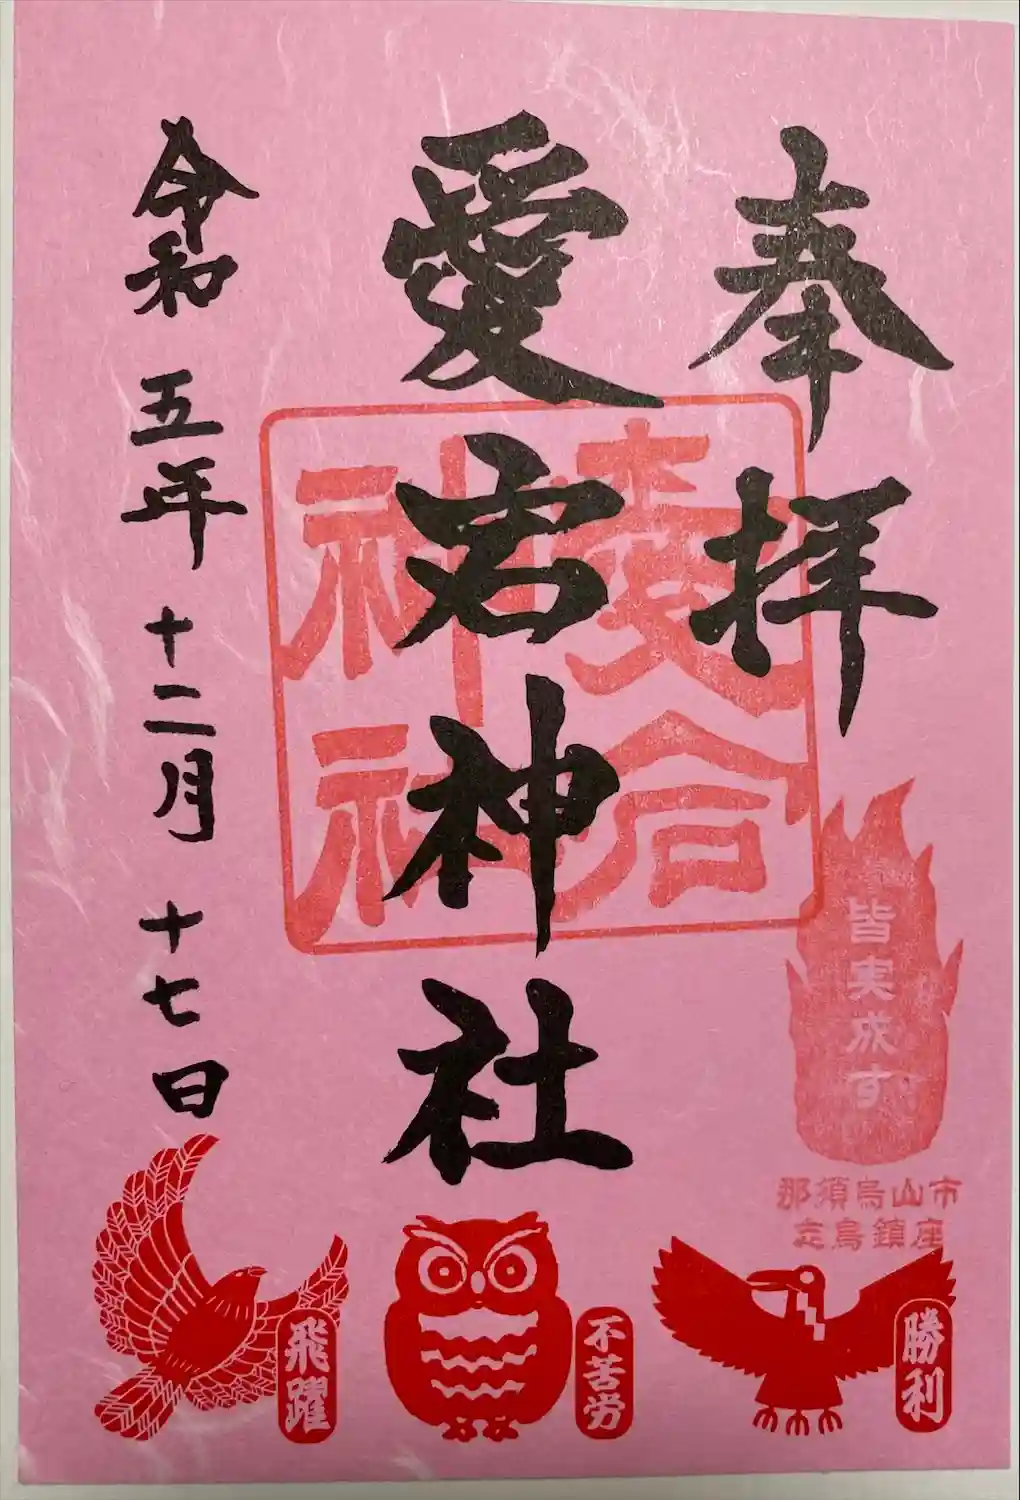 奉拝
愛宕神社
令和五年 十二月 十七日
愛宕
神社
皆実成す
那須烏山市
志鳥鎮座
勝利
不苦労
飛躍